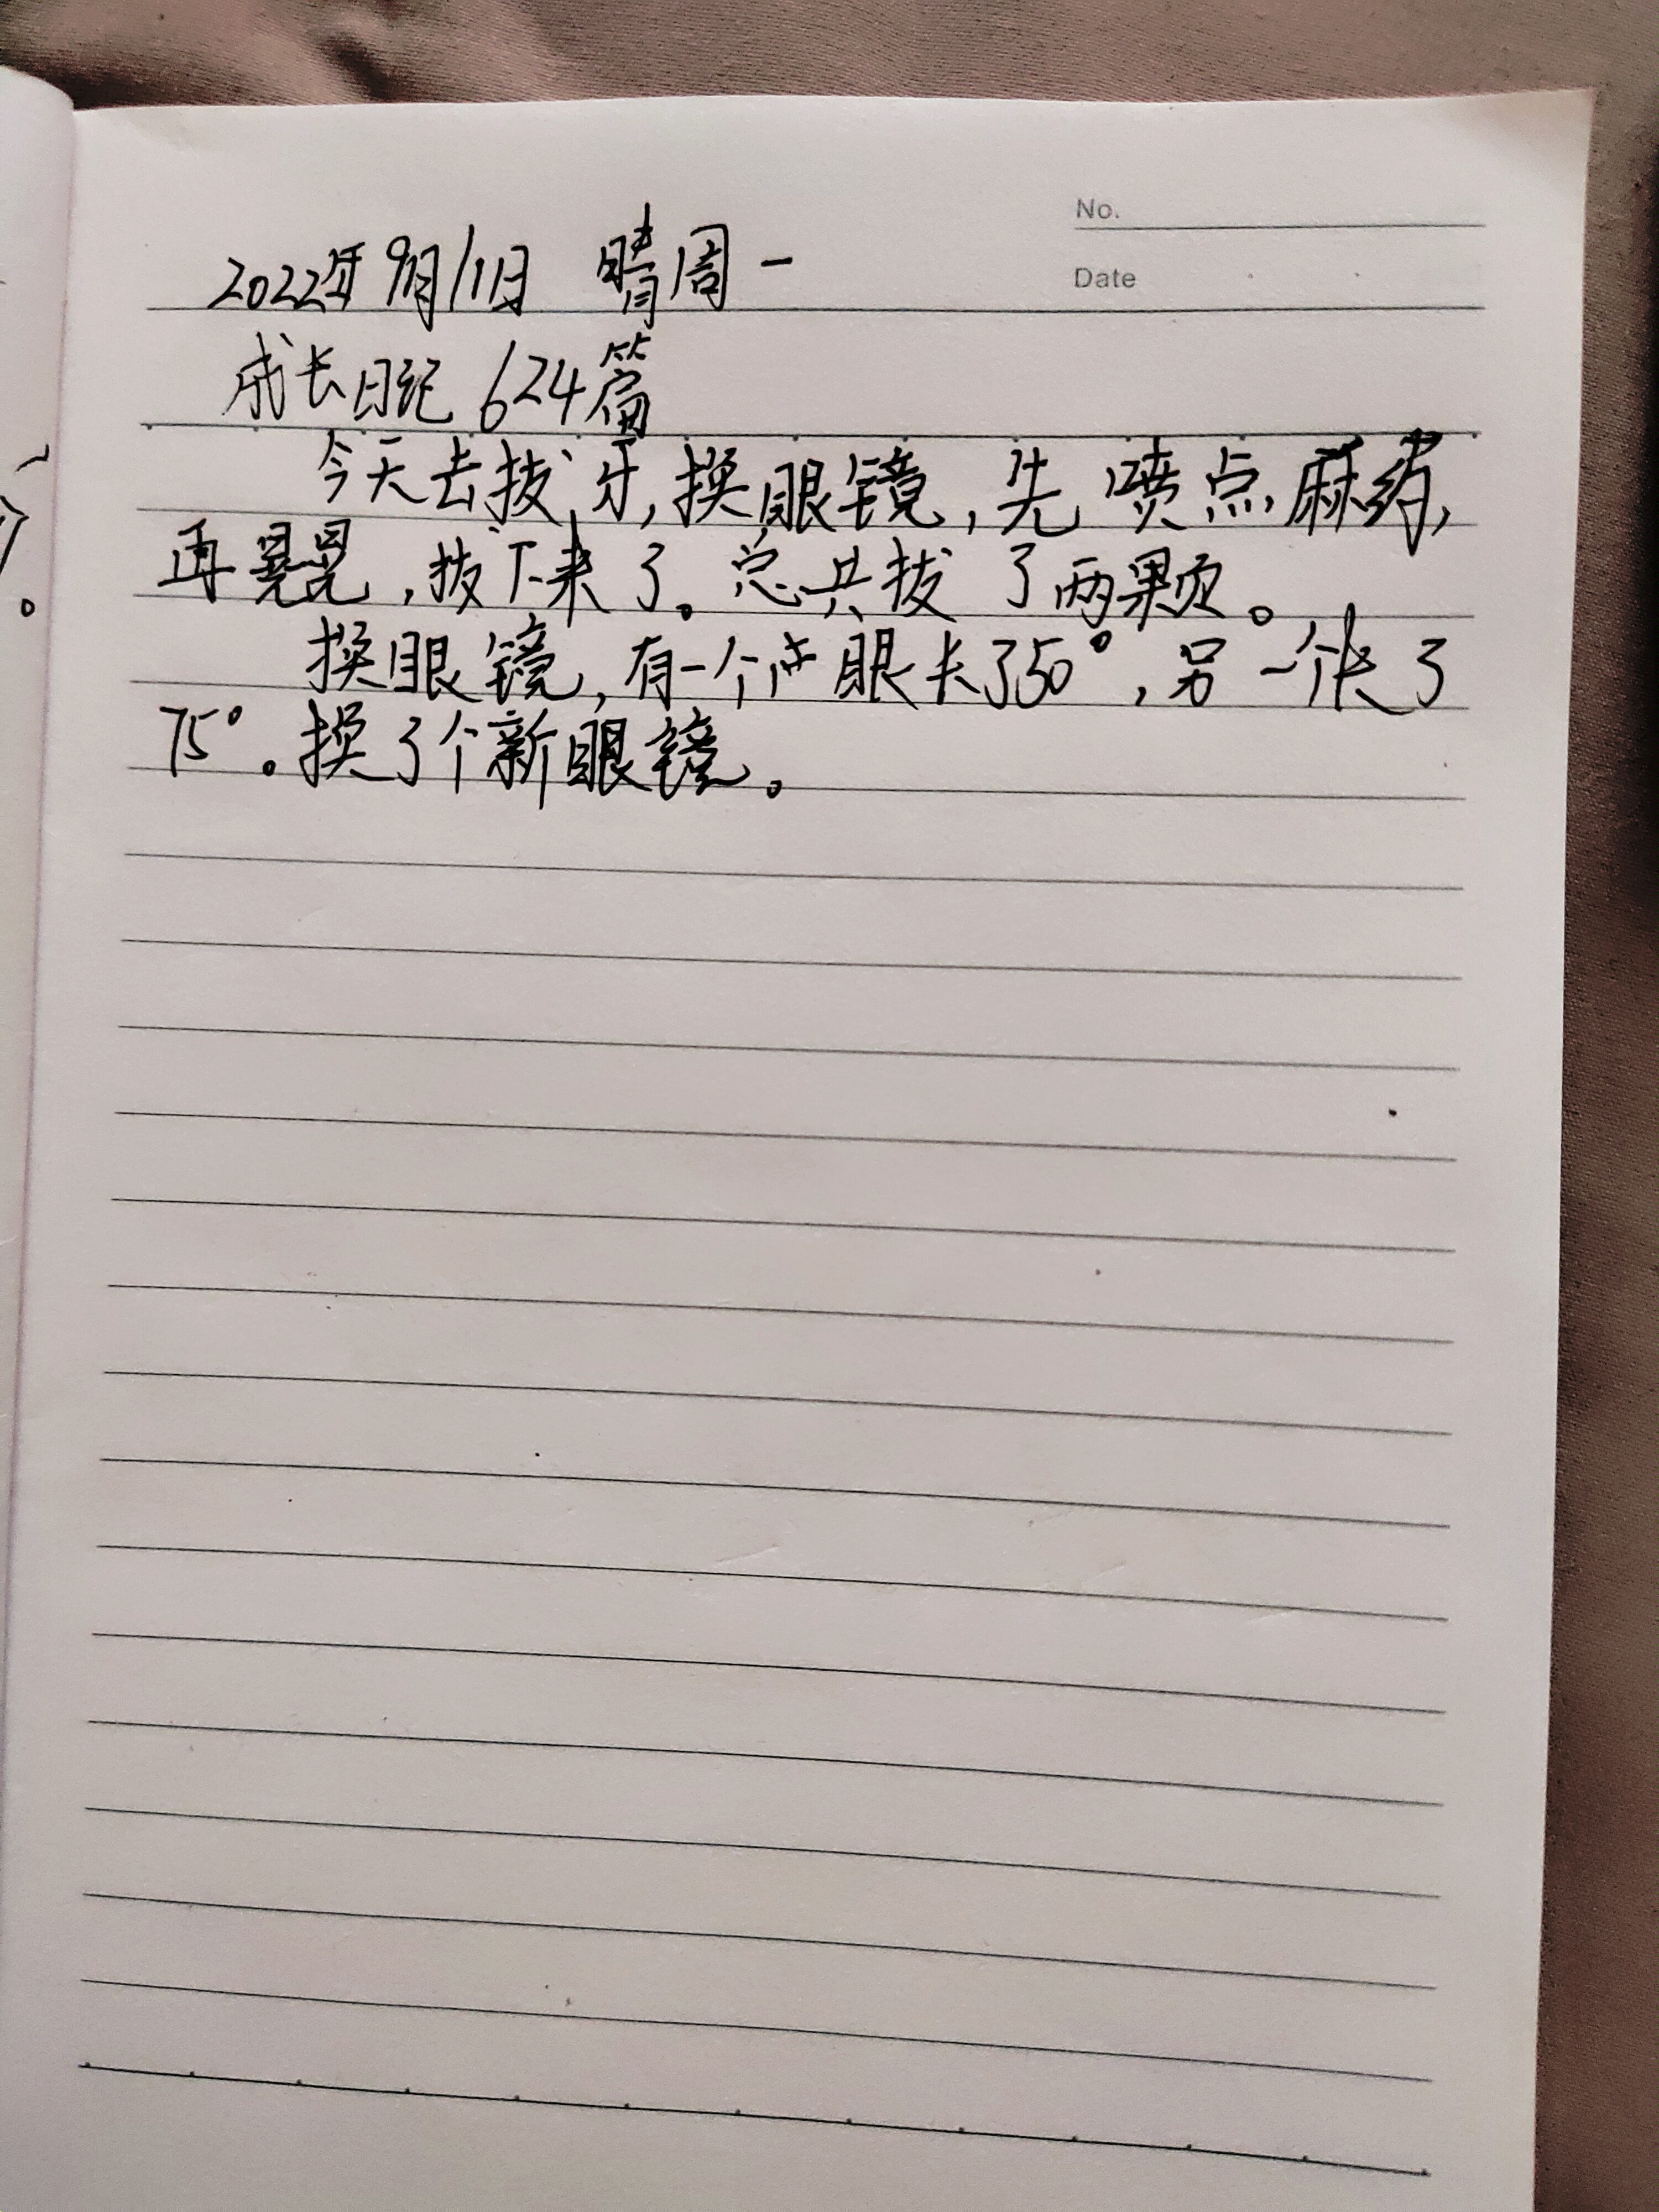 No.
Date
2022年9月11日 晴周一
成长日记 624篇
今天去拔牙,换眼镜,先喷点麻药,
再晃晃,拔下来了。总共拔了两颗。
换眼镜,有一个眼长了50°,另一个长了
75°。换了个新眼镜。